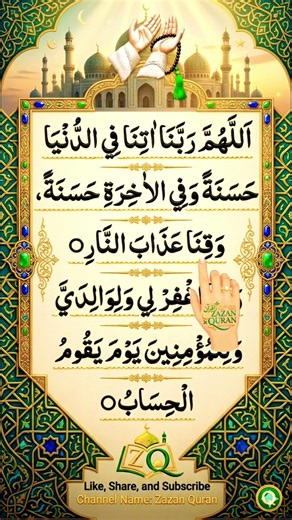 اَللّٰهُمَّ رَبَّنَا اٰتِنَا فِي الدُّنْيَا
حَسَنَةً وَفِي الْاٰخِرَةِ حَسَنَةً،
وَقِنَا عَذَابَ النَّارِ○
لِي وَلِوَالِدَيَّ
يَوْمَ يَقُومُ
الْحِسَابُ○
ZAZAN
QURAN
ZQ
Like, Share, and Subscribe
Channel Name: Zazan Quran